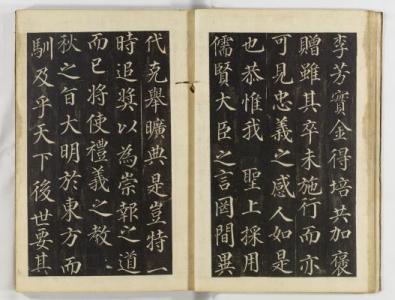 李芳實金得培共加褒
贈雖其卒未施行而亦
可見忠義之感人如是
也恭惟我 聖上採用
儒賢大臣之言罔間異
代克舉曠典是豈特一
時追奬以為崇報之道
而已將使禮義之教
秋之旨大明於東方而
馴及乎天下後世要其